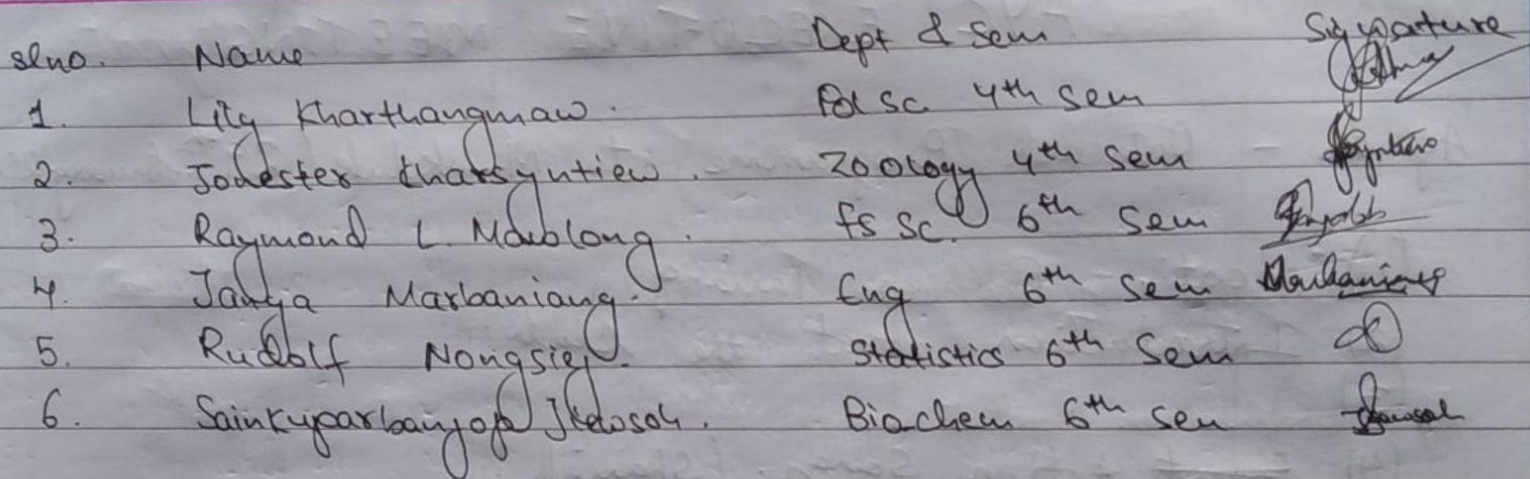 slno. Name Dept & Sem Signature
1. Lily Kharthangmaw. Pol Sc. 4th Sem
2. Jodester Kharsyntiew. Zoology 4th Sem
3. Raymond L. Mawblong. fs Sc. 6th Sem
4. Janya Marbaniang. Eng 6th Sem Marbaniang
5. Rudolf Nongsiej. Statistics 6th Sem
6. Biochem 6th Sem